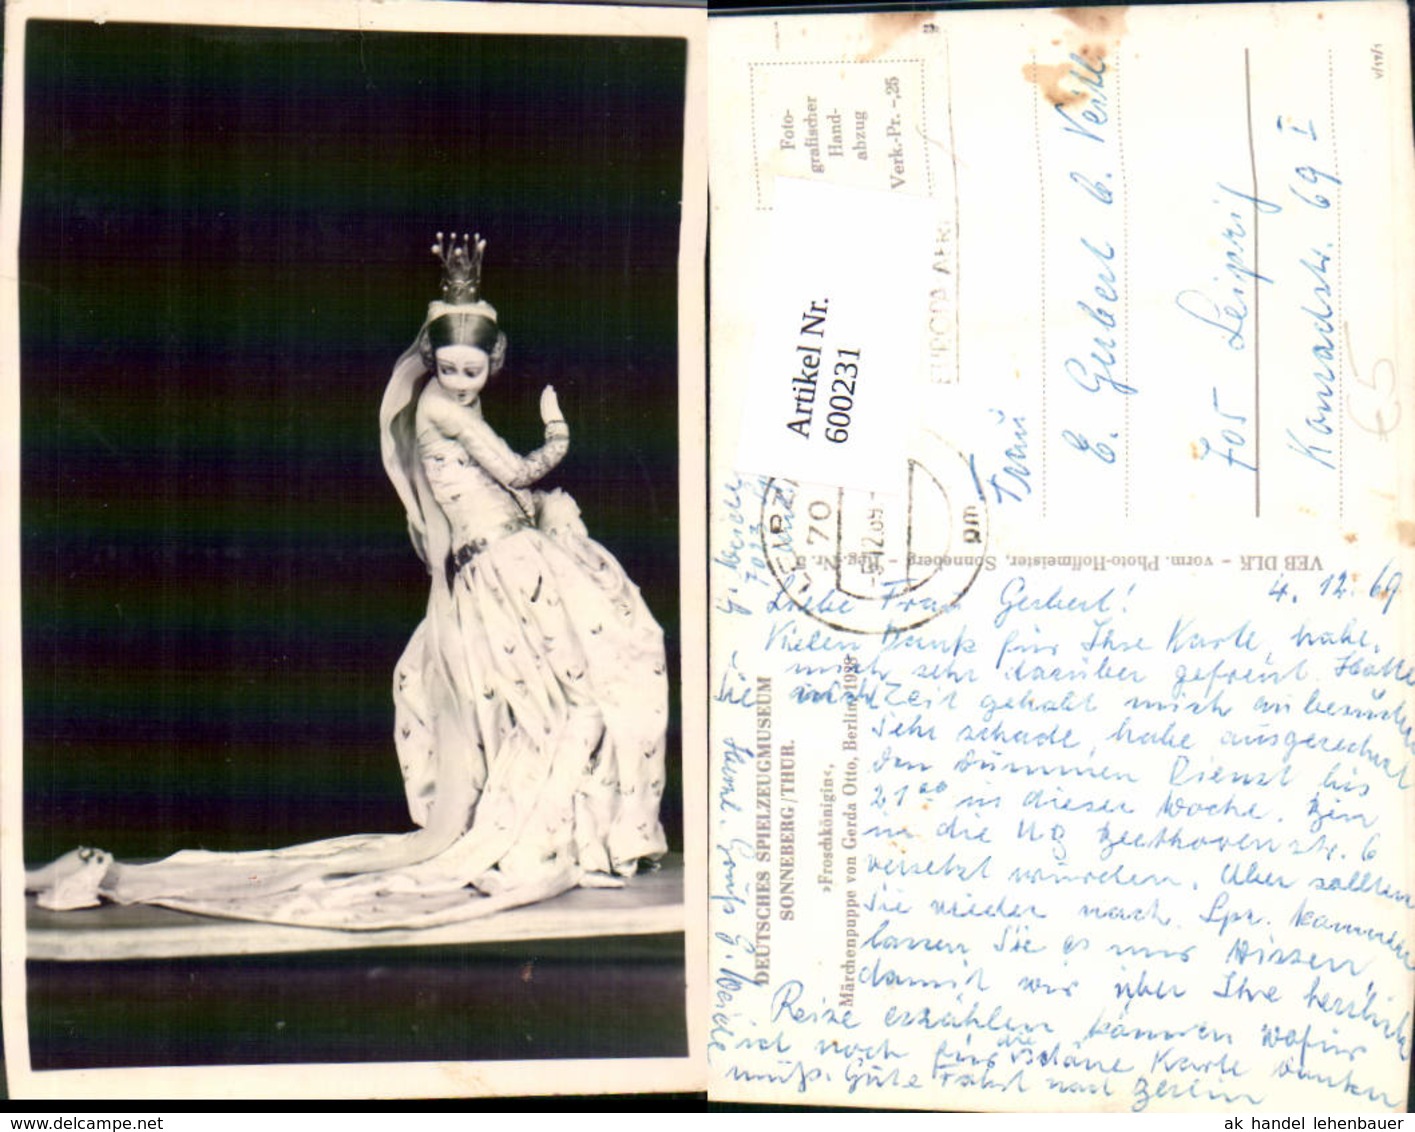 Foto-
grafischer
Hand-
abzug
Verk.-Pr. -,25
V/19/1
Artikel Nr.
600231
EUROPA
70
Frau
E. Gerbert b. Veith
705 Leipzig
Konradstr. 69 I
€5
VEB DLK - vorm. Photo-Hoffmeister, Sonneberg -
DEUTSCHES SPIELZEUGMUSEUM
SONNEBERG/THÜR.
»Froschkönigin«,
Märchenpuppe von Gerda Otto, Berlin, 1938
4. 12. 69
Liebe Frau Gerbert!
Vielen Dank für Ihre Karte, habe
mich sehr darüber gefreut. Hatte
Sie nicht Zeit gehabt mich zu besuchen
Sehr schade, habe ausgerechnet
den dummen Dienst bis
21⁰⁰ in dieser Woche. Bin
in die HO Beethovenstr. 6
versetzt worden. Aber sollten
Sie wieder nach Lpz. kommen
lassen Sie es mir wissen,
damit wir über Ihre herrliche
Reise erzählen können wofür
ich noch für die schöne Karte danken
muß. Gute Fahrt nach Berlin
ak handel lehenbauer